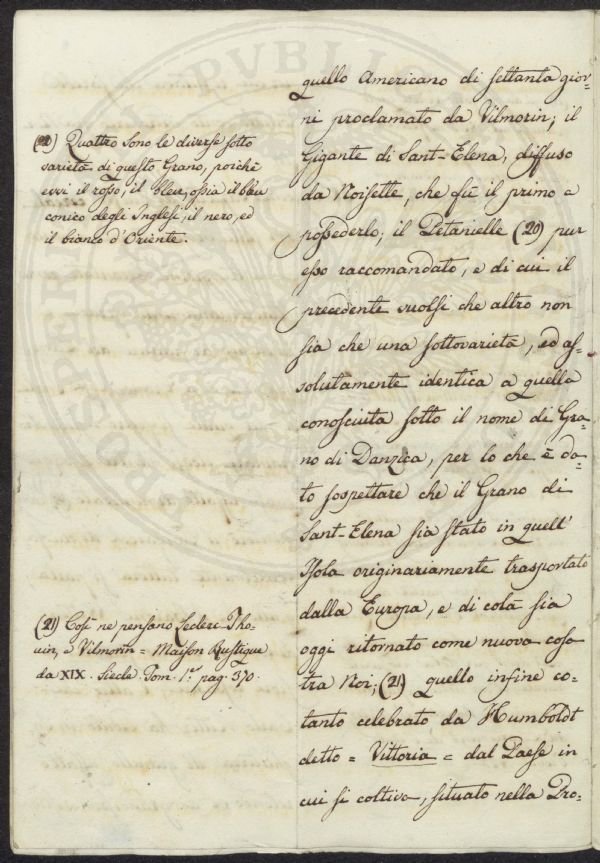 quello Americano di settanta gior-
ni proclamato da Vilmorin; il
Gigante di Sant-Elena, diffuso
da Noisette, che fù il primo a
possederlo; il Petanielle (20) pur
esso raccomandato, e di cui il
precedente vuolsi che altro non
sia che una sottovarietà, ed as-
solutamente identica a quella
conosciuta sotto il nome di Gra-
no di Danzica, per lo che è da-
to sospettare che il Grano di
Sant-Elena sia stato in quell'
Isola originariamente trasportato
dalla Europa, e di colà sia
oggi ritornato come nuova cosa
tra Noi; (21) quello infine co-
tanto celebrato da Humboldt
detto = Vittoria = dal Paese in
cui si coltiva, situato nella Pro-
(20) Quattro sono le diverse sotto
varietà di questo Grano, poichè
evvi il rosso, il bleu, ossia il bleu
conico degli Inglesi, il nero, ed
il bianco d'Oriente.
(21) Così ne pensano Leclerc Tho-
uin, e Vilmorin = Maison Rustique
da XIX. Siecle. Tom. 1.r pag. 370.
PVBLI
PROSPERI